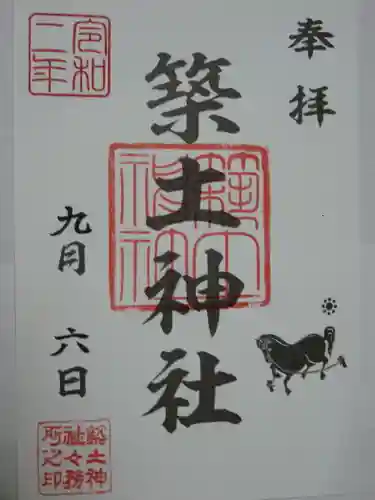 奉拝
築土神社
令和二年
九月六日
築土神社
築土神
社々務
所之印